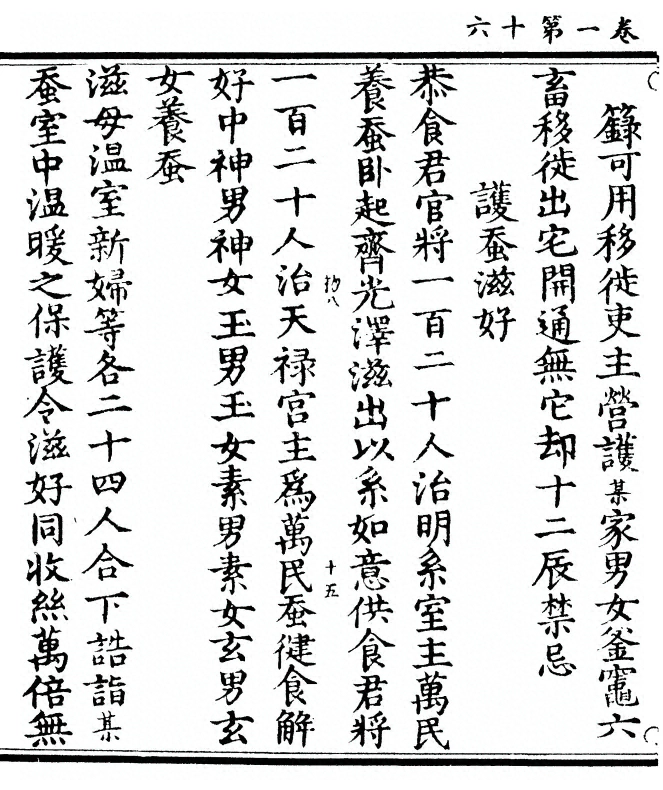 卷一第十六
籙可用移徙吏主營護某家男女釜竈六
畜移徙出宅開通無它却十二辰禁忌
護蚕滋好
恭食君官將一百二十人治明系室主萬民
養蚕卧起齊光澤滋出以系如意供食君將
初八
一百二十人治天禄宫主爲萬民蚕健食解
十五
好中神男神女玉男玉女素男素女玄男玄
女養蚕
滋母温室新婦等各二十四人合下詣某
蚕室中温暖之保護令滋好同收絲萬倍無